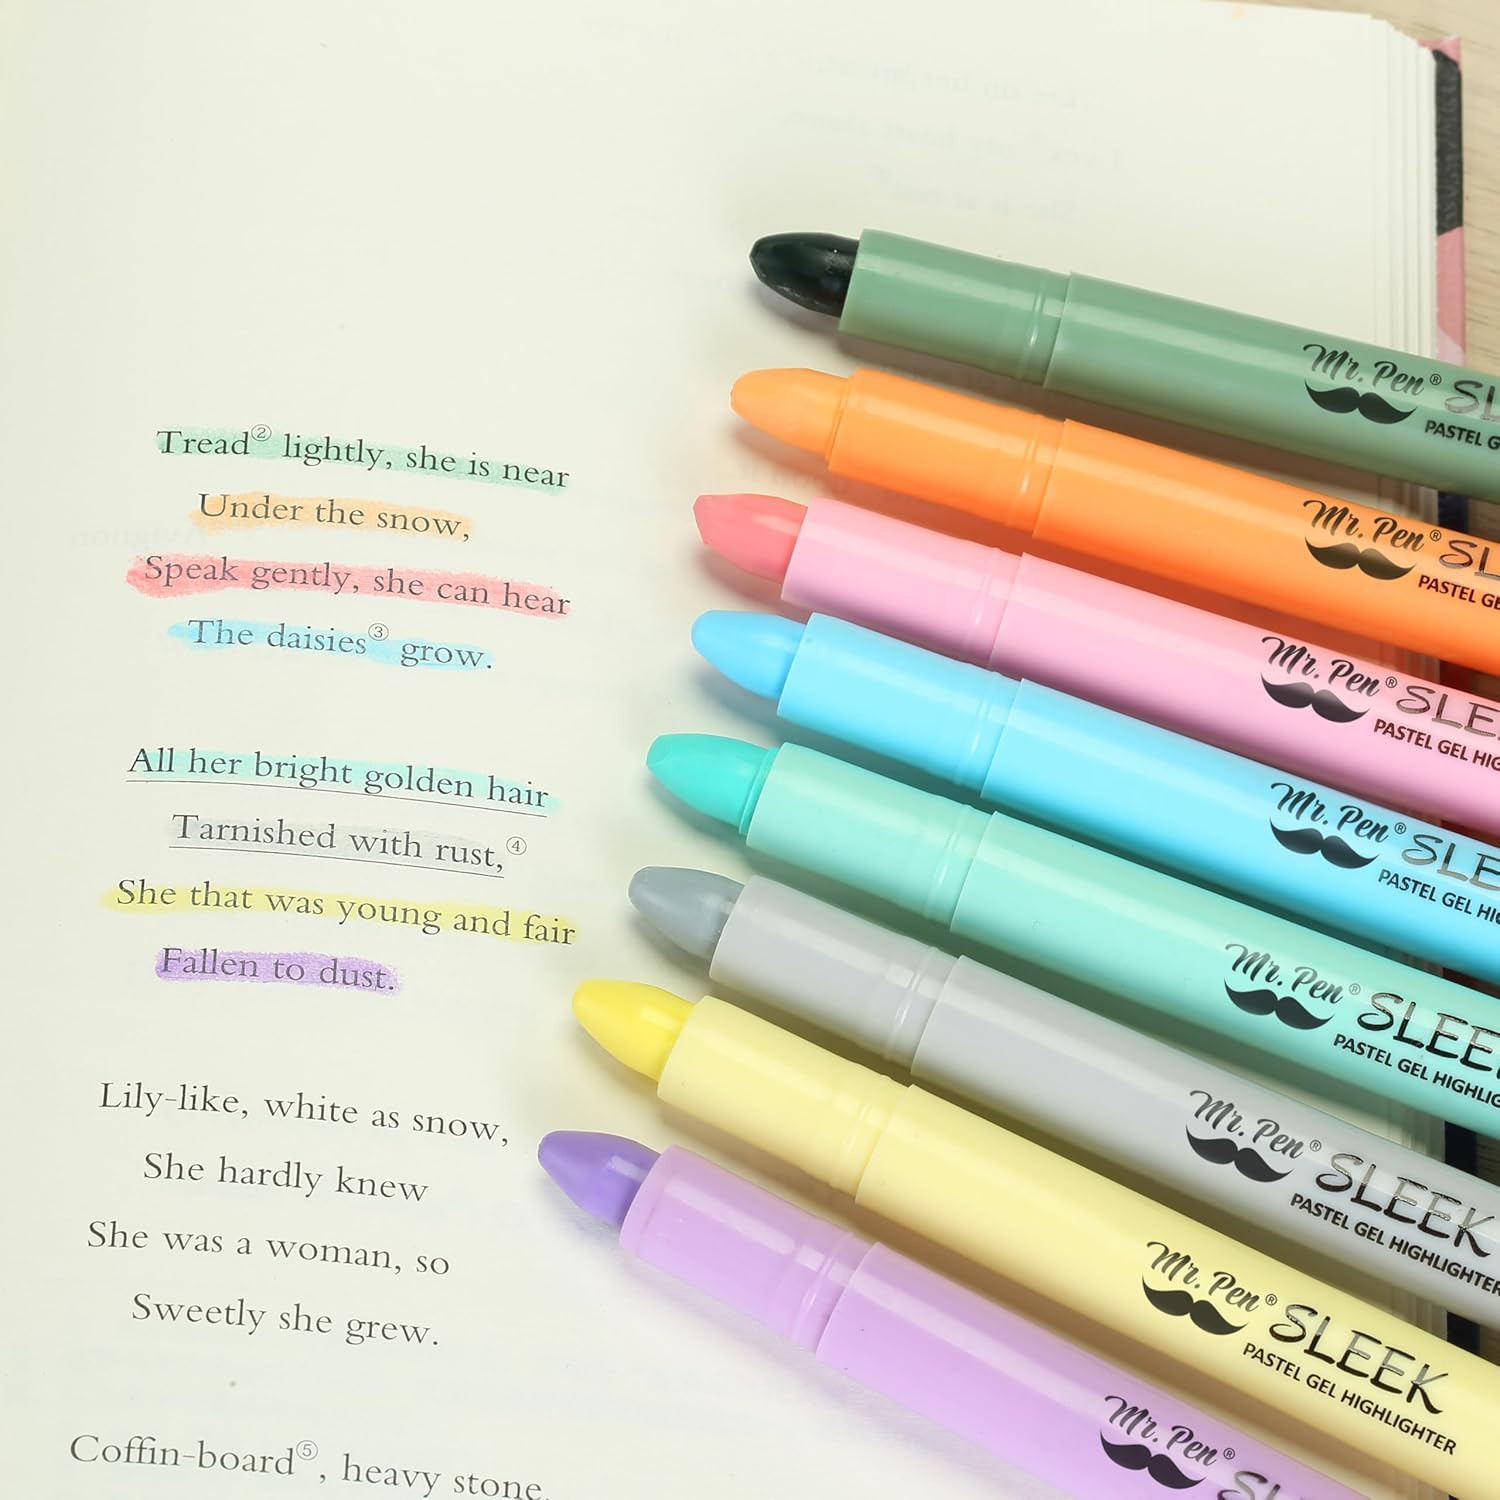 Tread② lightly, she is near
Under the snow,
Speak gently, she can hear
The daisies③ grow.
All her bright golden hair
Tarnished with rust,④
She that was young and fair
Fallen to dust.
Lily-like, white as snow,
She hardly knew
She was a woman, so
Sweetly she grew.
Coffin-board⑤, heavy stone,
Mr. Pen® SL
PASTEL G
Mr. Pen® SL
PASTEL GE
Mr. Pen® SLE
PASTEL GEL HIG
Mr. Pen® SLE
PASTEL GEL HIG
Mr. Pen® SLEE
PASTEL GEL HIGHLIG
Mr. Pen® SLEEK
PASTEL GEL HIGHLIGHTER
Mr. Pen® SLEEK
PASTEL GEL HIGHLIGHTER
Mr. Pen® SL